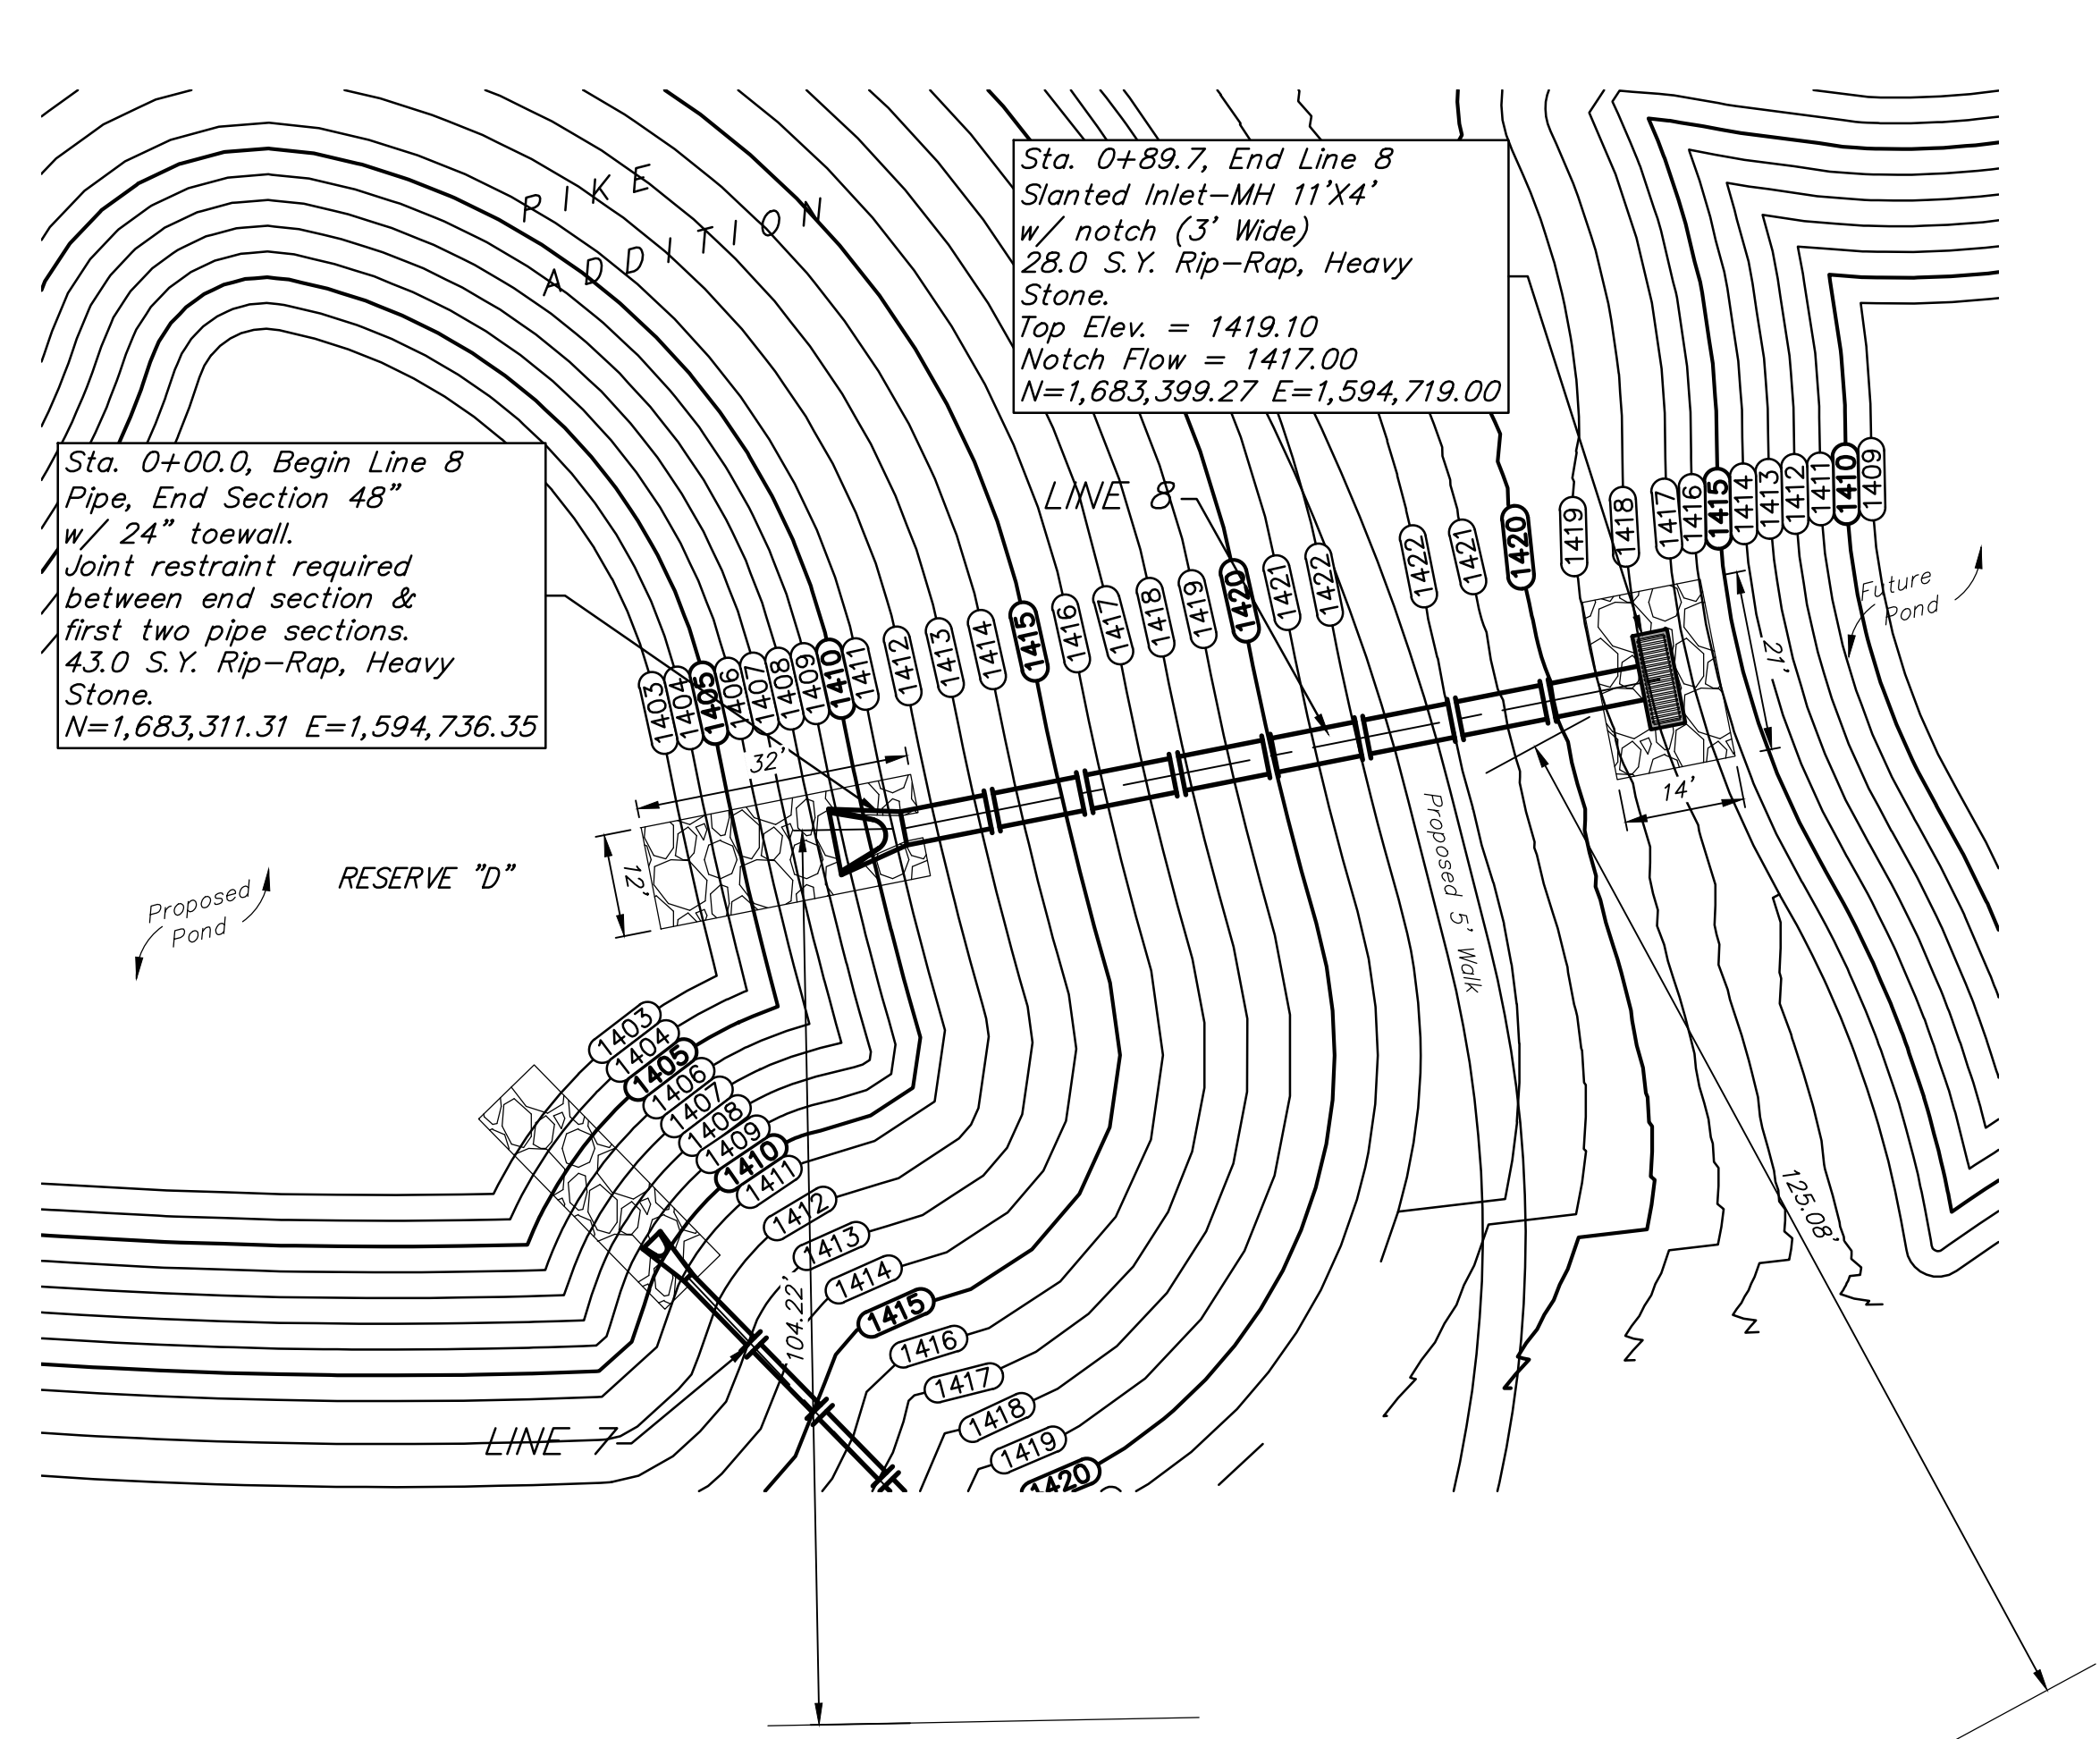 PIKE
ADDITION
Sta. 0+89.7, End Line 8
Slanted Inlet-MH 11'X4'
w/ notch (3' Wide)
28.0 S.Y. Rip-Rap, Heavy
Stone.
Top Elev. = 1419.10
Notch Flow = 1417.00
N=1,683,399.27 E=1,594,719.00
Sta. 0+00.0, Begin Line 8
Pipe, End Section 48"
w/ 24" toewall.
Joint restraint required
between end section &
first two pipe sections.
43.0 S.Y. Rip-Rap, Heavy
Stone.
N=1,683,311.31 E=1,594,736.35
LINE 8
1403
1404
1405
1406
1407
1408
1409
1410
1411
1412
1413
1414
1415
1416
1417
1418
1419
1420
1421
1422
1422
1421
1420
1419
1418
1417
1416
1415
1414
1413
1412
1411
1410
1409
Future
Pond
21'
14'
32'
12'
Proposed 5' Walk
RESERVE "D"
Proposed
Pond
1403
1404
1405
1406
1407
1408
1409
1410
1411
1412
1413
1414
1415
1416
1417
1418
1419
1420
104.22'
125.08'
LINE 7